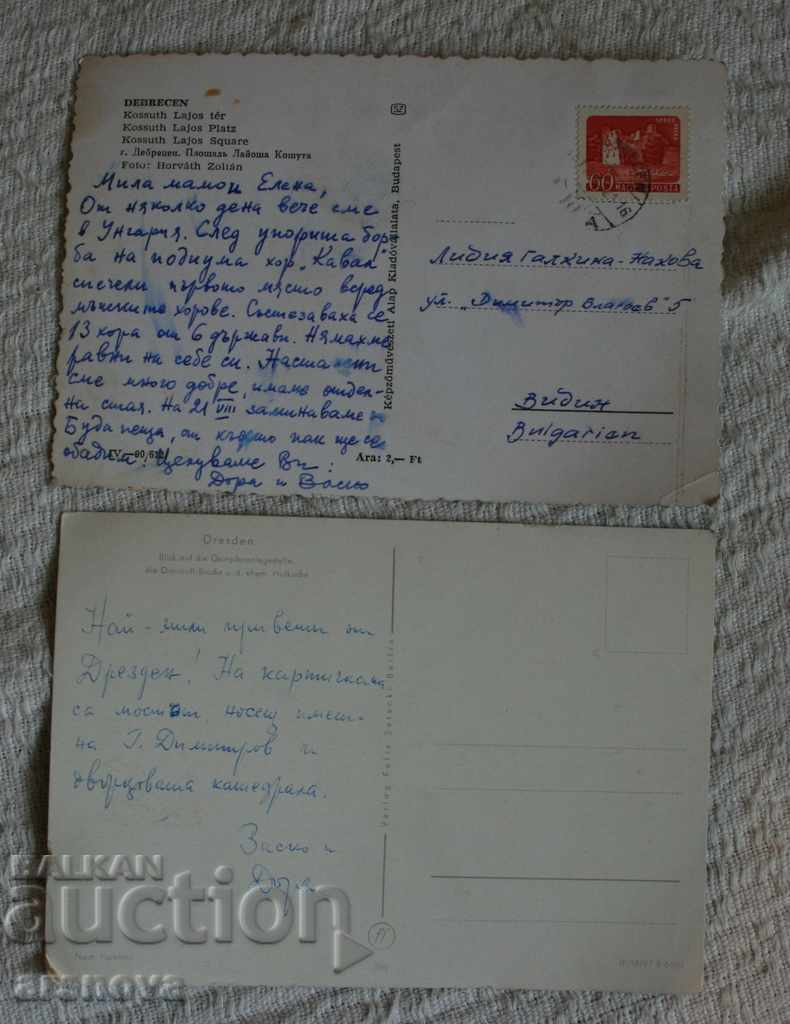 DEBRECEN
Kossuth Lajos tér
Kossuth Lajos Platz
Kossuth Lajos Square
г. Дебрецен. Площадь Лайоша Кошута
Foto: Horváth Zoltán
Мила мамо и Елена,
От няколко дена вече сме
в Унгария. След упорита бор
ба на подиума хор "Кавал"
спечели първото място всред
мъжките хорове. Състезаваха се
13 хора от 6 държави. Нямахме
равни на себе си. Настанени
сме много добре, имаме отдел-
на стая. На 21 VIII заминаваме
Будапеща, от където пак ще се
обадим. Целуваме Ви:
Дора и Васко
Ara: 2,— Ft
Képzőművészeti Alap Kiadóvállalata, Budapest
60
MAGYAR POSTA
Лидия Галкина-Нахова
ул. "Димитър Благоев" 5
Видин
Bulgarien
Dresden
Най-мили привети от
Дрезден! На картичката
са мостът, носещ имет-
на Г. Димитров и
дворцовата катедрала.
Васко и
Дора
Verlag Felix Setecki Berlin
BALKAN
auction
arsnova